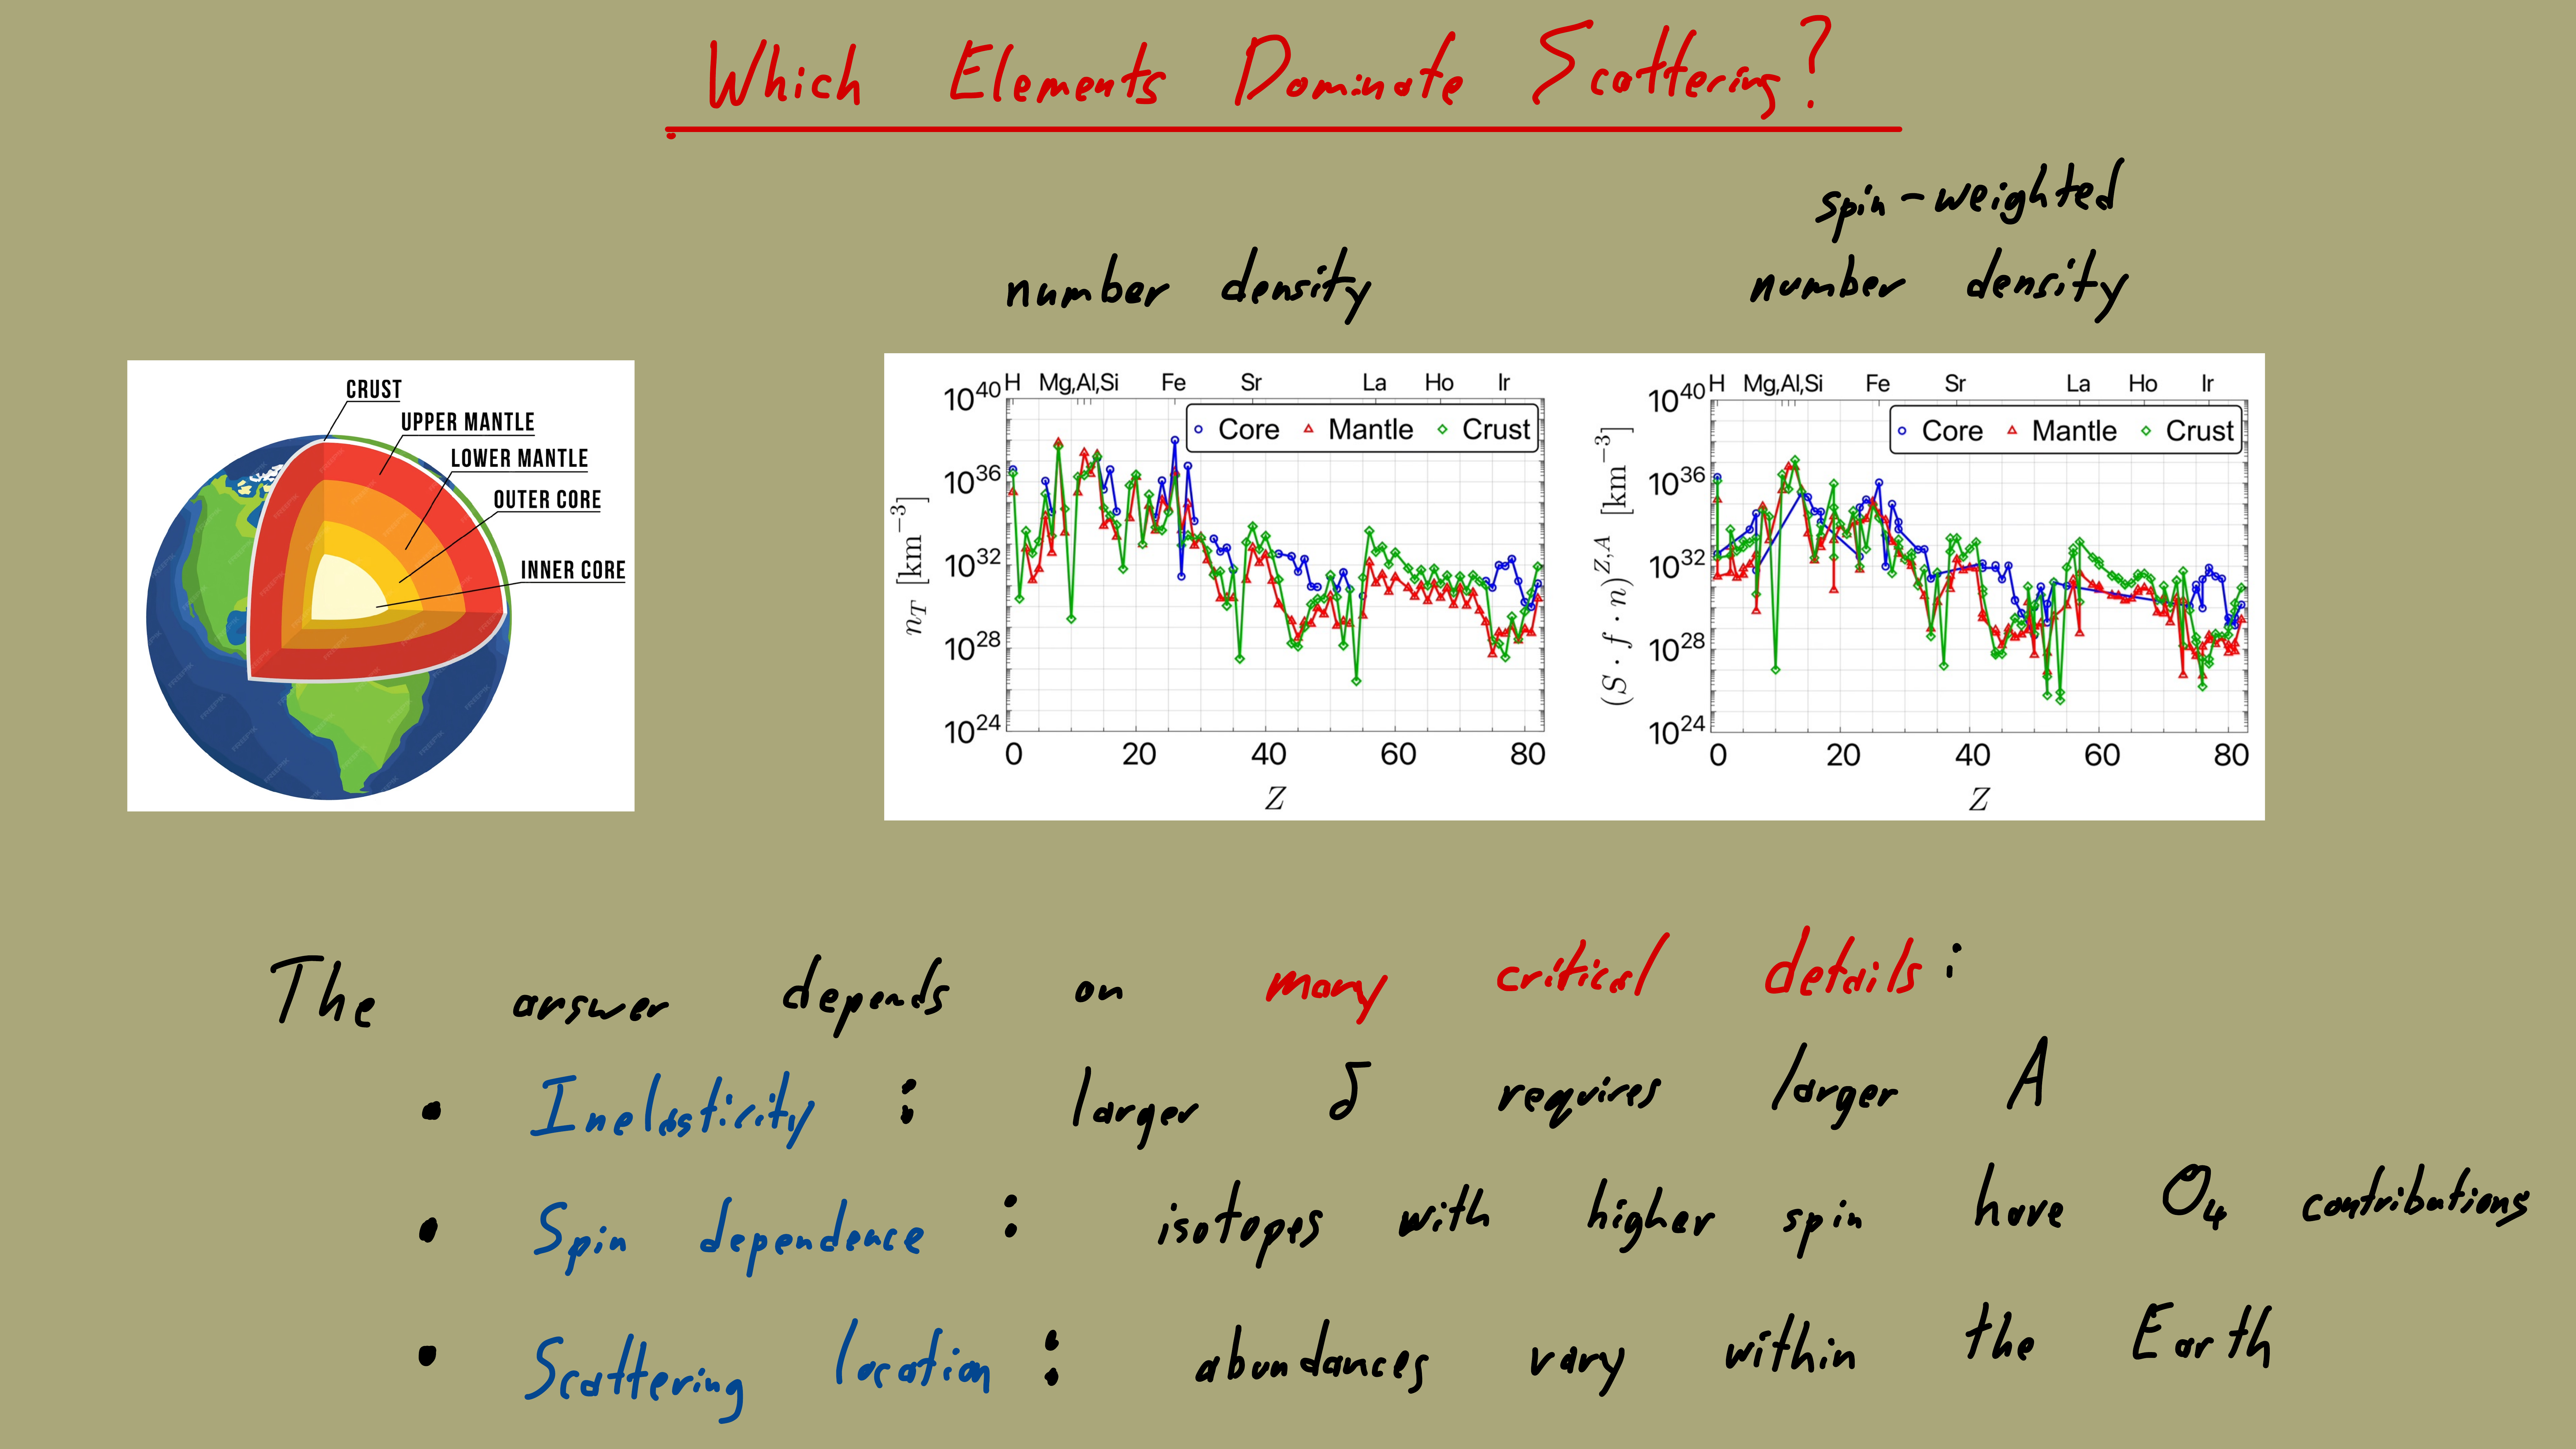 Which Elements Dominate Scattering?
spin-weighted
number density
number density
CRUST
UPPER MANTLE
LOWER MANTLE
OUTER CORE
INNER CORE
H Mg,Al,Si Fe Sr La Ho Ir
Core Mantle Crust
10^40
10^36
10^32
10^28
10^24
n_T [km^-3]
0 20 40 60 80
Z
H Mg,Al,Si Fe Sr La Ho Ir
Core Mantle Crust
10^40
10^36
10^32
10^28
10^24
(S · f · n)^Z,A [km^-3]
0 20 40 60 80
Z
The answer depends on many critical details:
• Inelasticity : larger δ requires larger A
• Spin dependence : isotopes with higher spin have O_4 contributions
• Scattering location : abundances vary within the Earth